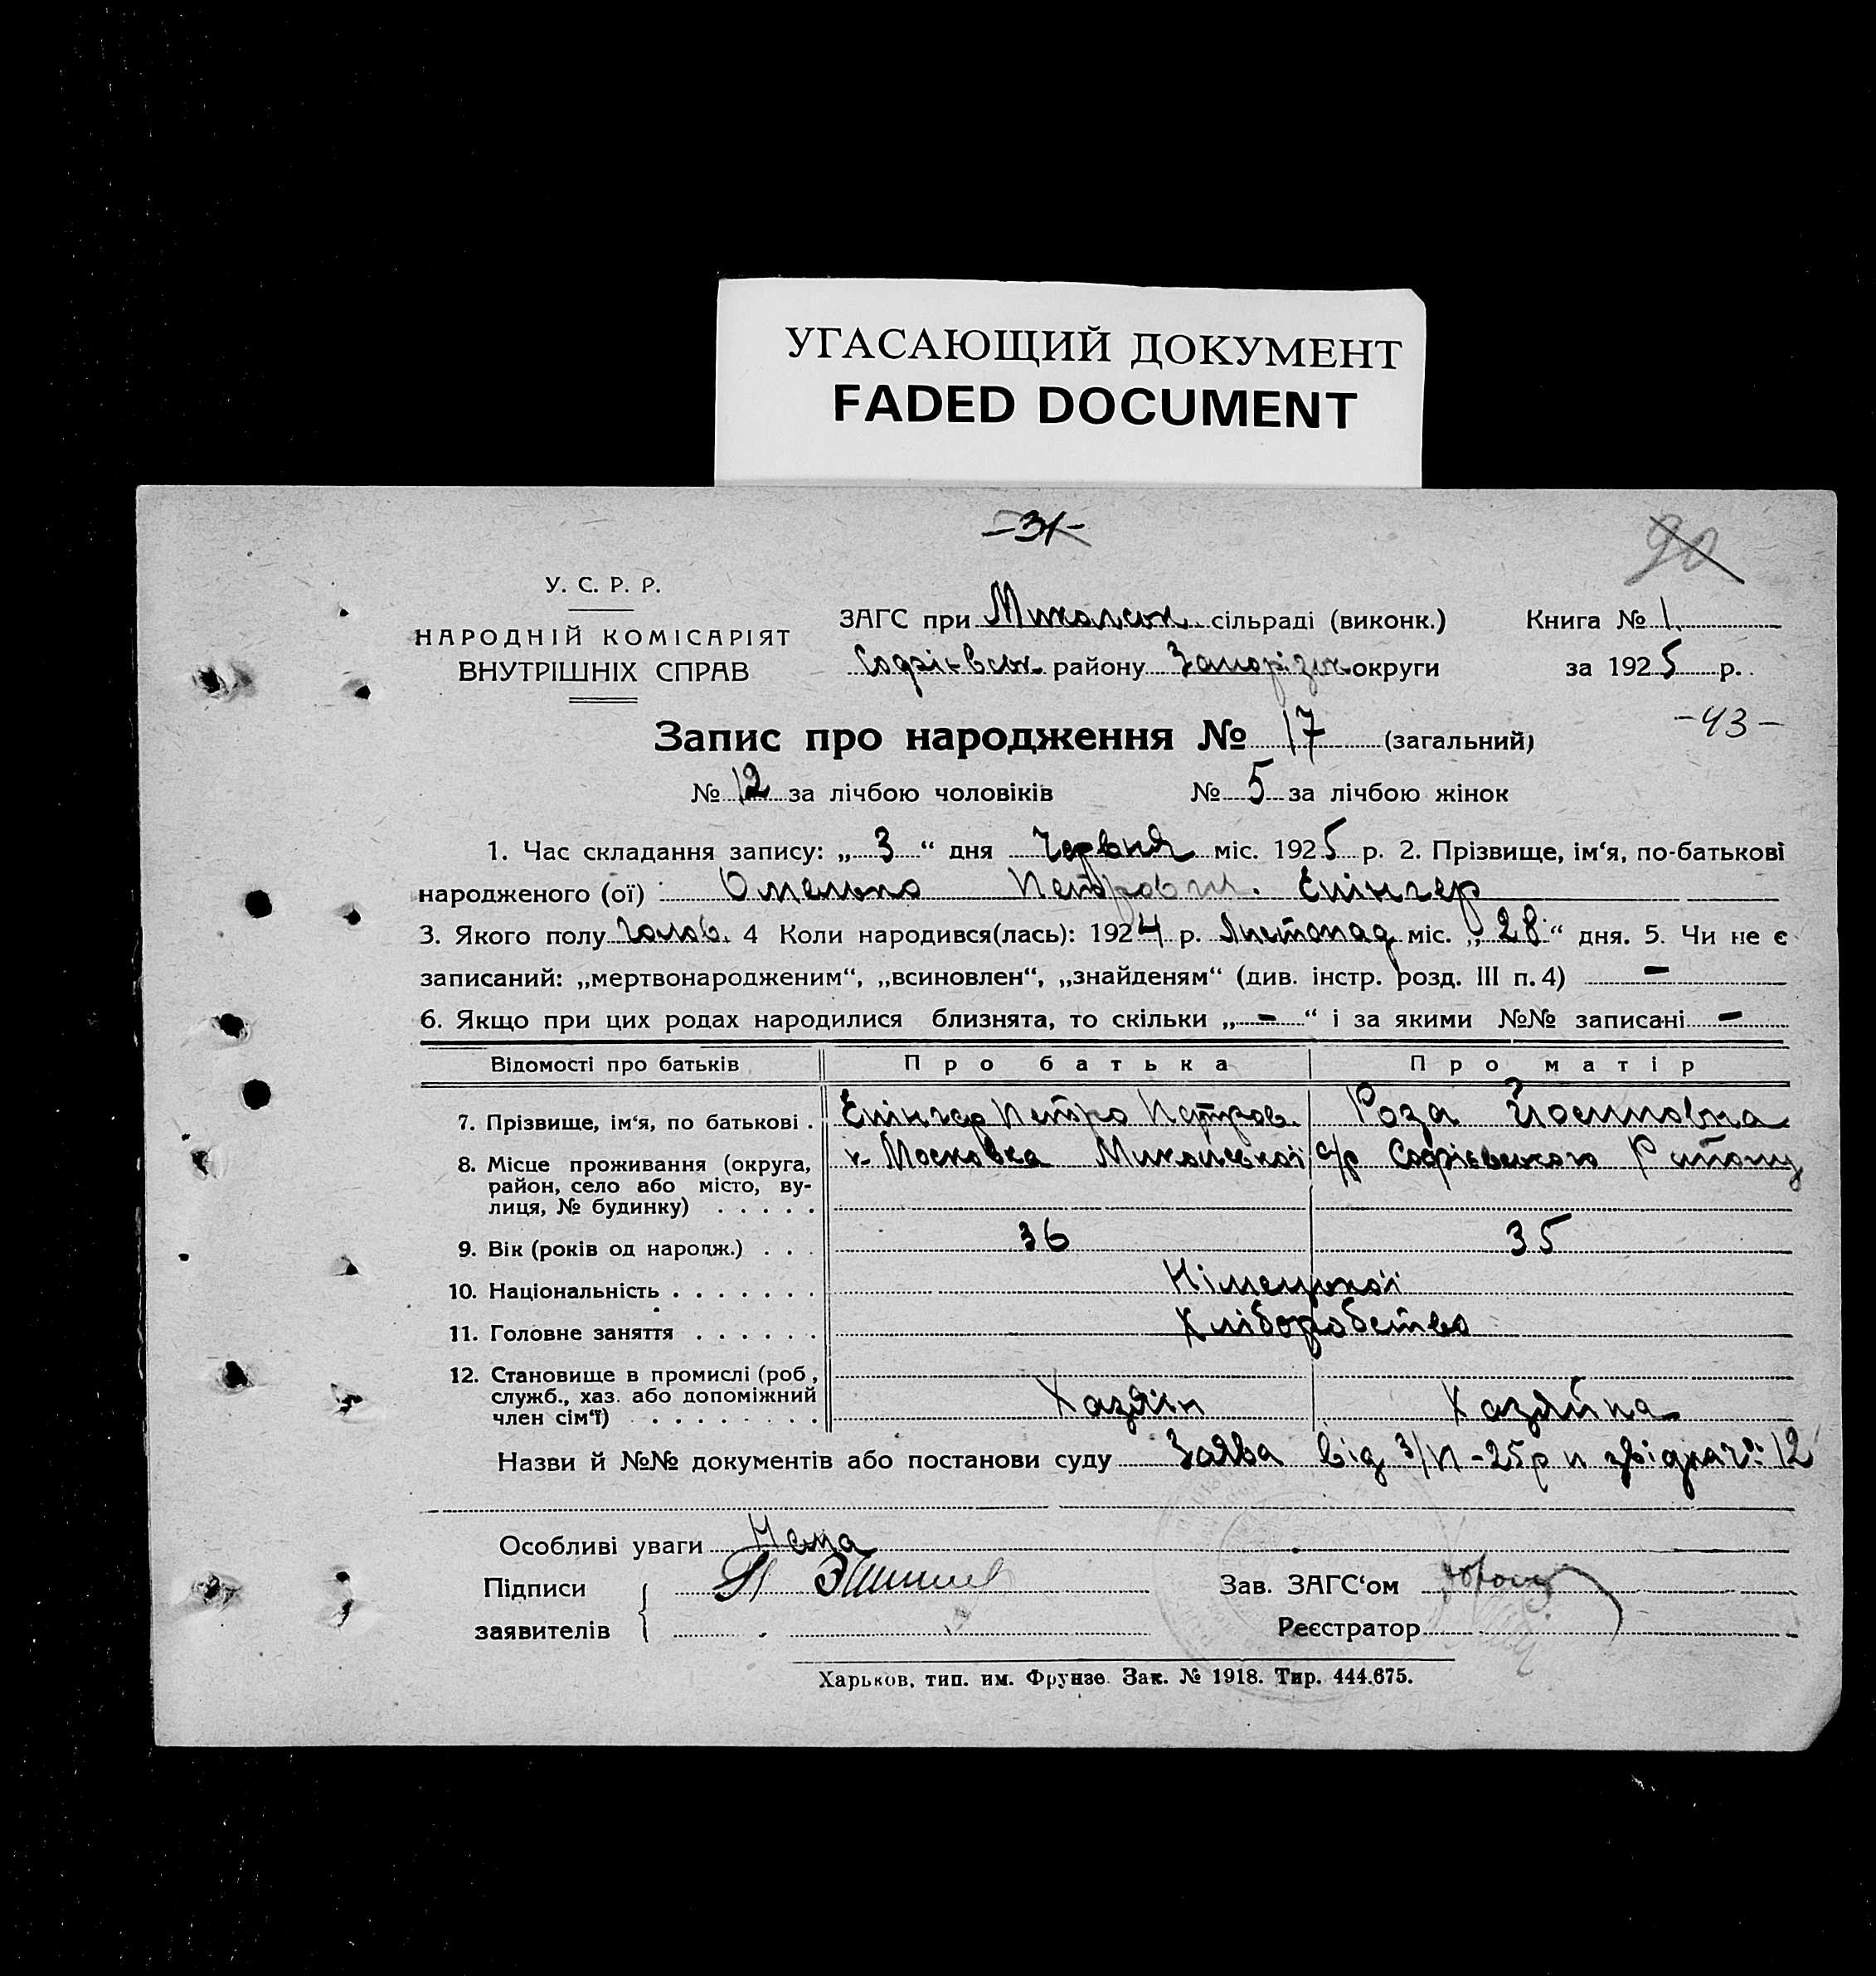 УГАСАЮЩИЙ ДОКУМЕНТ
FADED DOCUMENT
-31-
90
У. С. Р. Р.
НАРОДНІЙ КОМІСАРІЯТ
ВНУТРІШНІХ СПРАВ
ЗАГС при сільраді (виконк.)
Софієвськ району Запорізьк округи
Книга № 1
за 1925 р.
Запис про народження № 17 (загальний)
-43-
№ 12 за лічбою чоловіків № 5 за лічбою жінок
1. Час складання запису: „ 3 “ дня Червня міс. 1925 р. 2. Прізвище, ім‘я, по-батькові
народженого (ої) Омелько Петрович. Епінгер
3. Якого полу чолов. 4 Коли народився(лась): 1924 р. Листопад міс. „ 28 “ дня. 5. Чи не є
записаний: „мертвонародженим“, „всиновлен“, „знайденям“ (див. інстр. розд. III п. 4) -
6. Якщо при цих родах народилися близнята, то скільки „ - “ і за якими №№ записані -
Відомості про батьків Про батька Про матір
7. Прізвище, ім‘я, по батькові . Епінгер Петро Петров. Роза Йосиповна
8. Місце проживання (округа, к. Московка Микольської с/р Софієвського Району
район, село або місто, ву-
лиця, № будинку) . . . . .
9. Вік (років од народж.) . . . 36 35
10. Національність . . . . . . . Німецької
11. Головне заняття . . . . . . Хліборобство
12. Становище в промислі (роб,
служб., хаз. або допоміжний Хазяїн Хазяйка
член сім‘ї) . . . . . . . .
Назви й №№ документів або постанови суду Заява від 3/VI-25р
Особливі уваги Нема
Підписи
заявителів
Зав. ЗАГС‘ом
Реєстратор
Харьков, тип. им. Фрунзе. Зак. № 1918. Тир. 444.675.